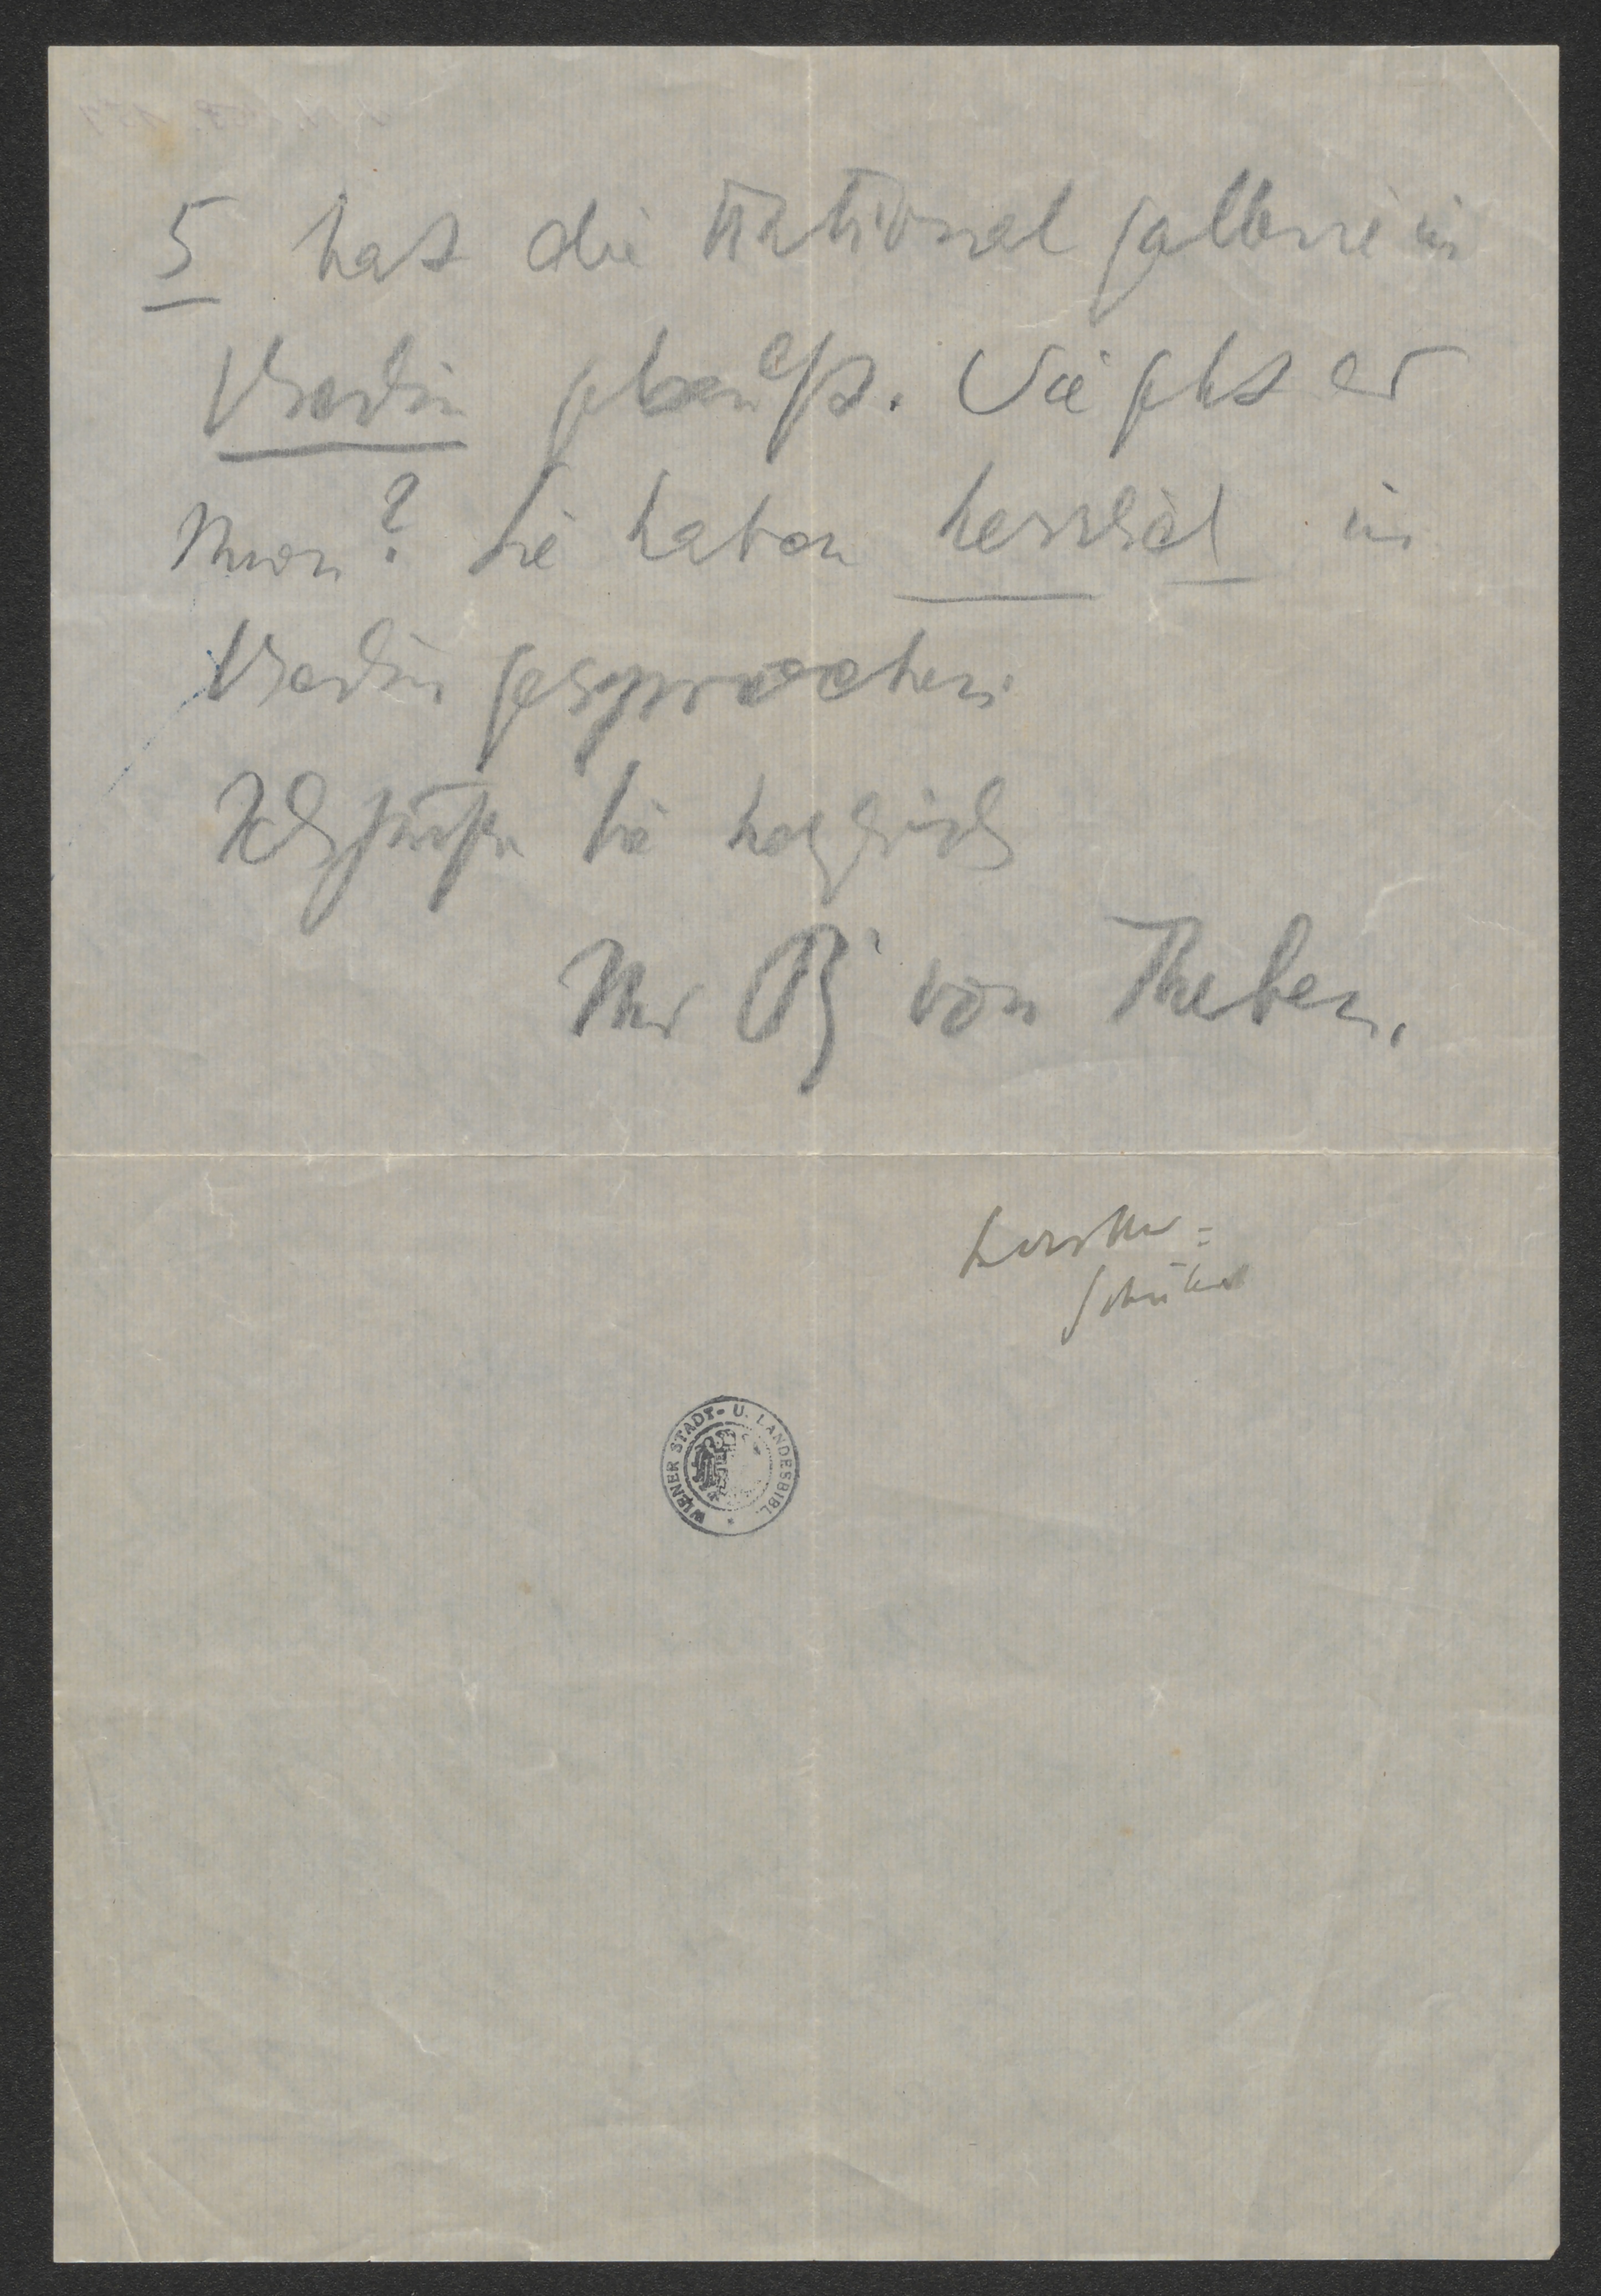 5 hat die Nationalgallerie in
Berlin gekauft. Wie geht es
Ihnen? Sie haben herrlich in
Berlin gesprochen.
Ich grüße Sie herzlich
Ihr Pz von Theben.
Lasker=
Schüler
WIENER STADT- U. LANDESBIBL.